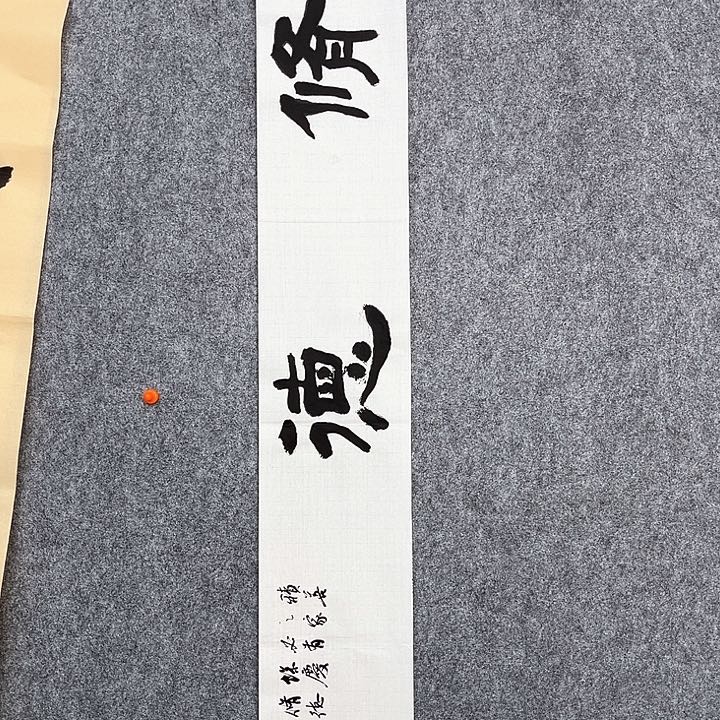 脩德
積善
之家
必有
餘慶
脩德